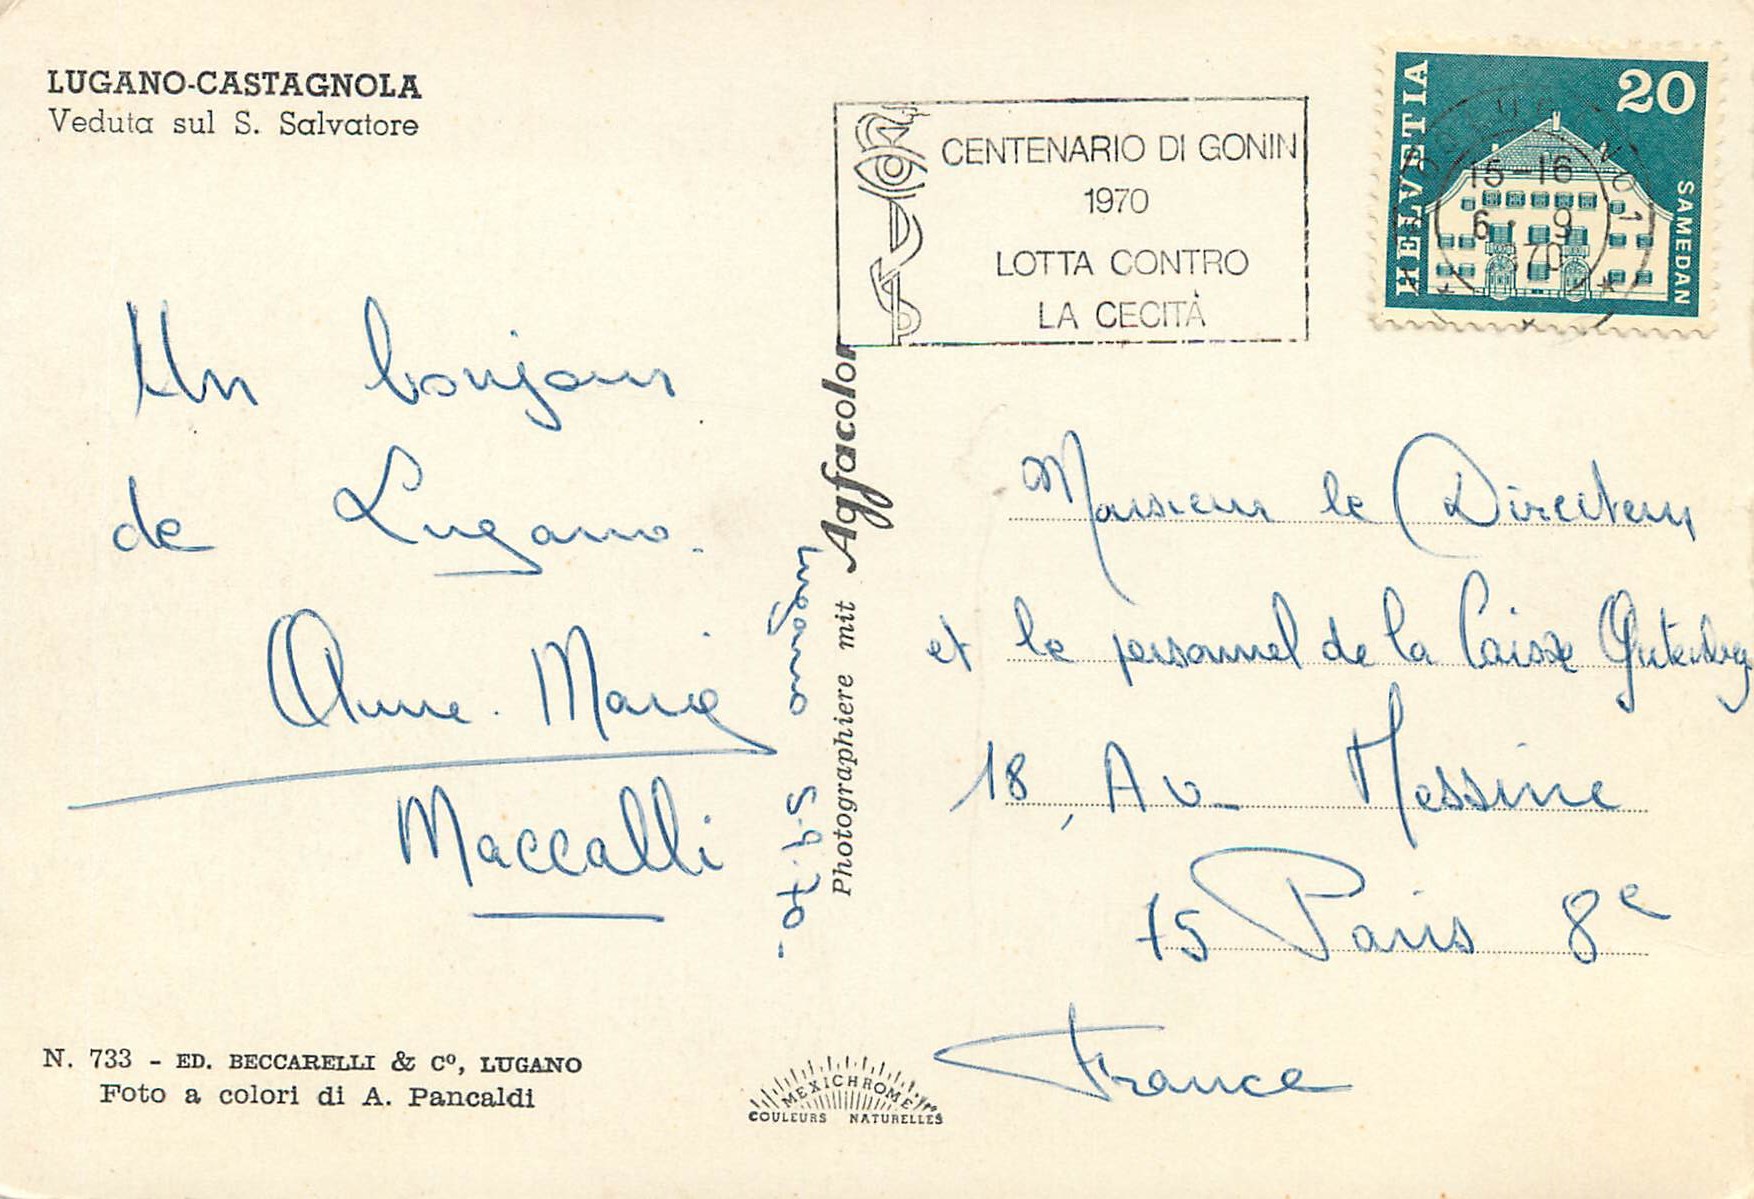 LUGANO-CASTAGNOLA
Veduta sul S. Salvatore
CENTENARIO DI GONIN
1970
LOTTA CONTRO
LA CECITÀ
HELVETIA
20
SAMEDAN
15-16
6. 9
970
1
Un bonjour
de Lugano.
Anne-Marie
Maccalli
Lugano 5.9.70-
Photographiere mit Agfacolor
Monsieur le Directeur
et le personnel de la Caisse Gutenberg
18, Av- Messine
75 Paris 8e
France
N. 733 - ED. BECCARELLI & Co, LUGANO
Foto a colori di A. Pancaldi
MEXICHROME
COULEURS NATURELLES